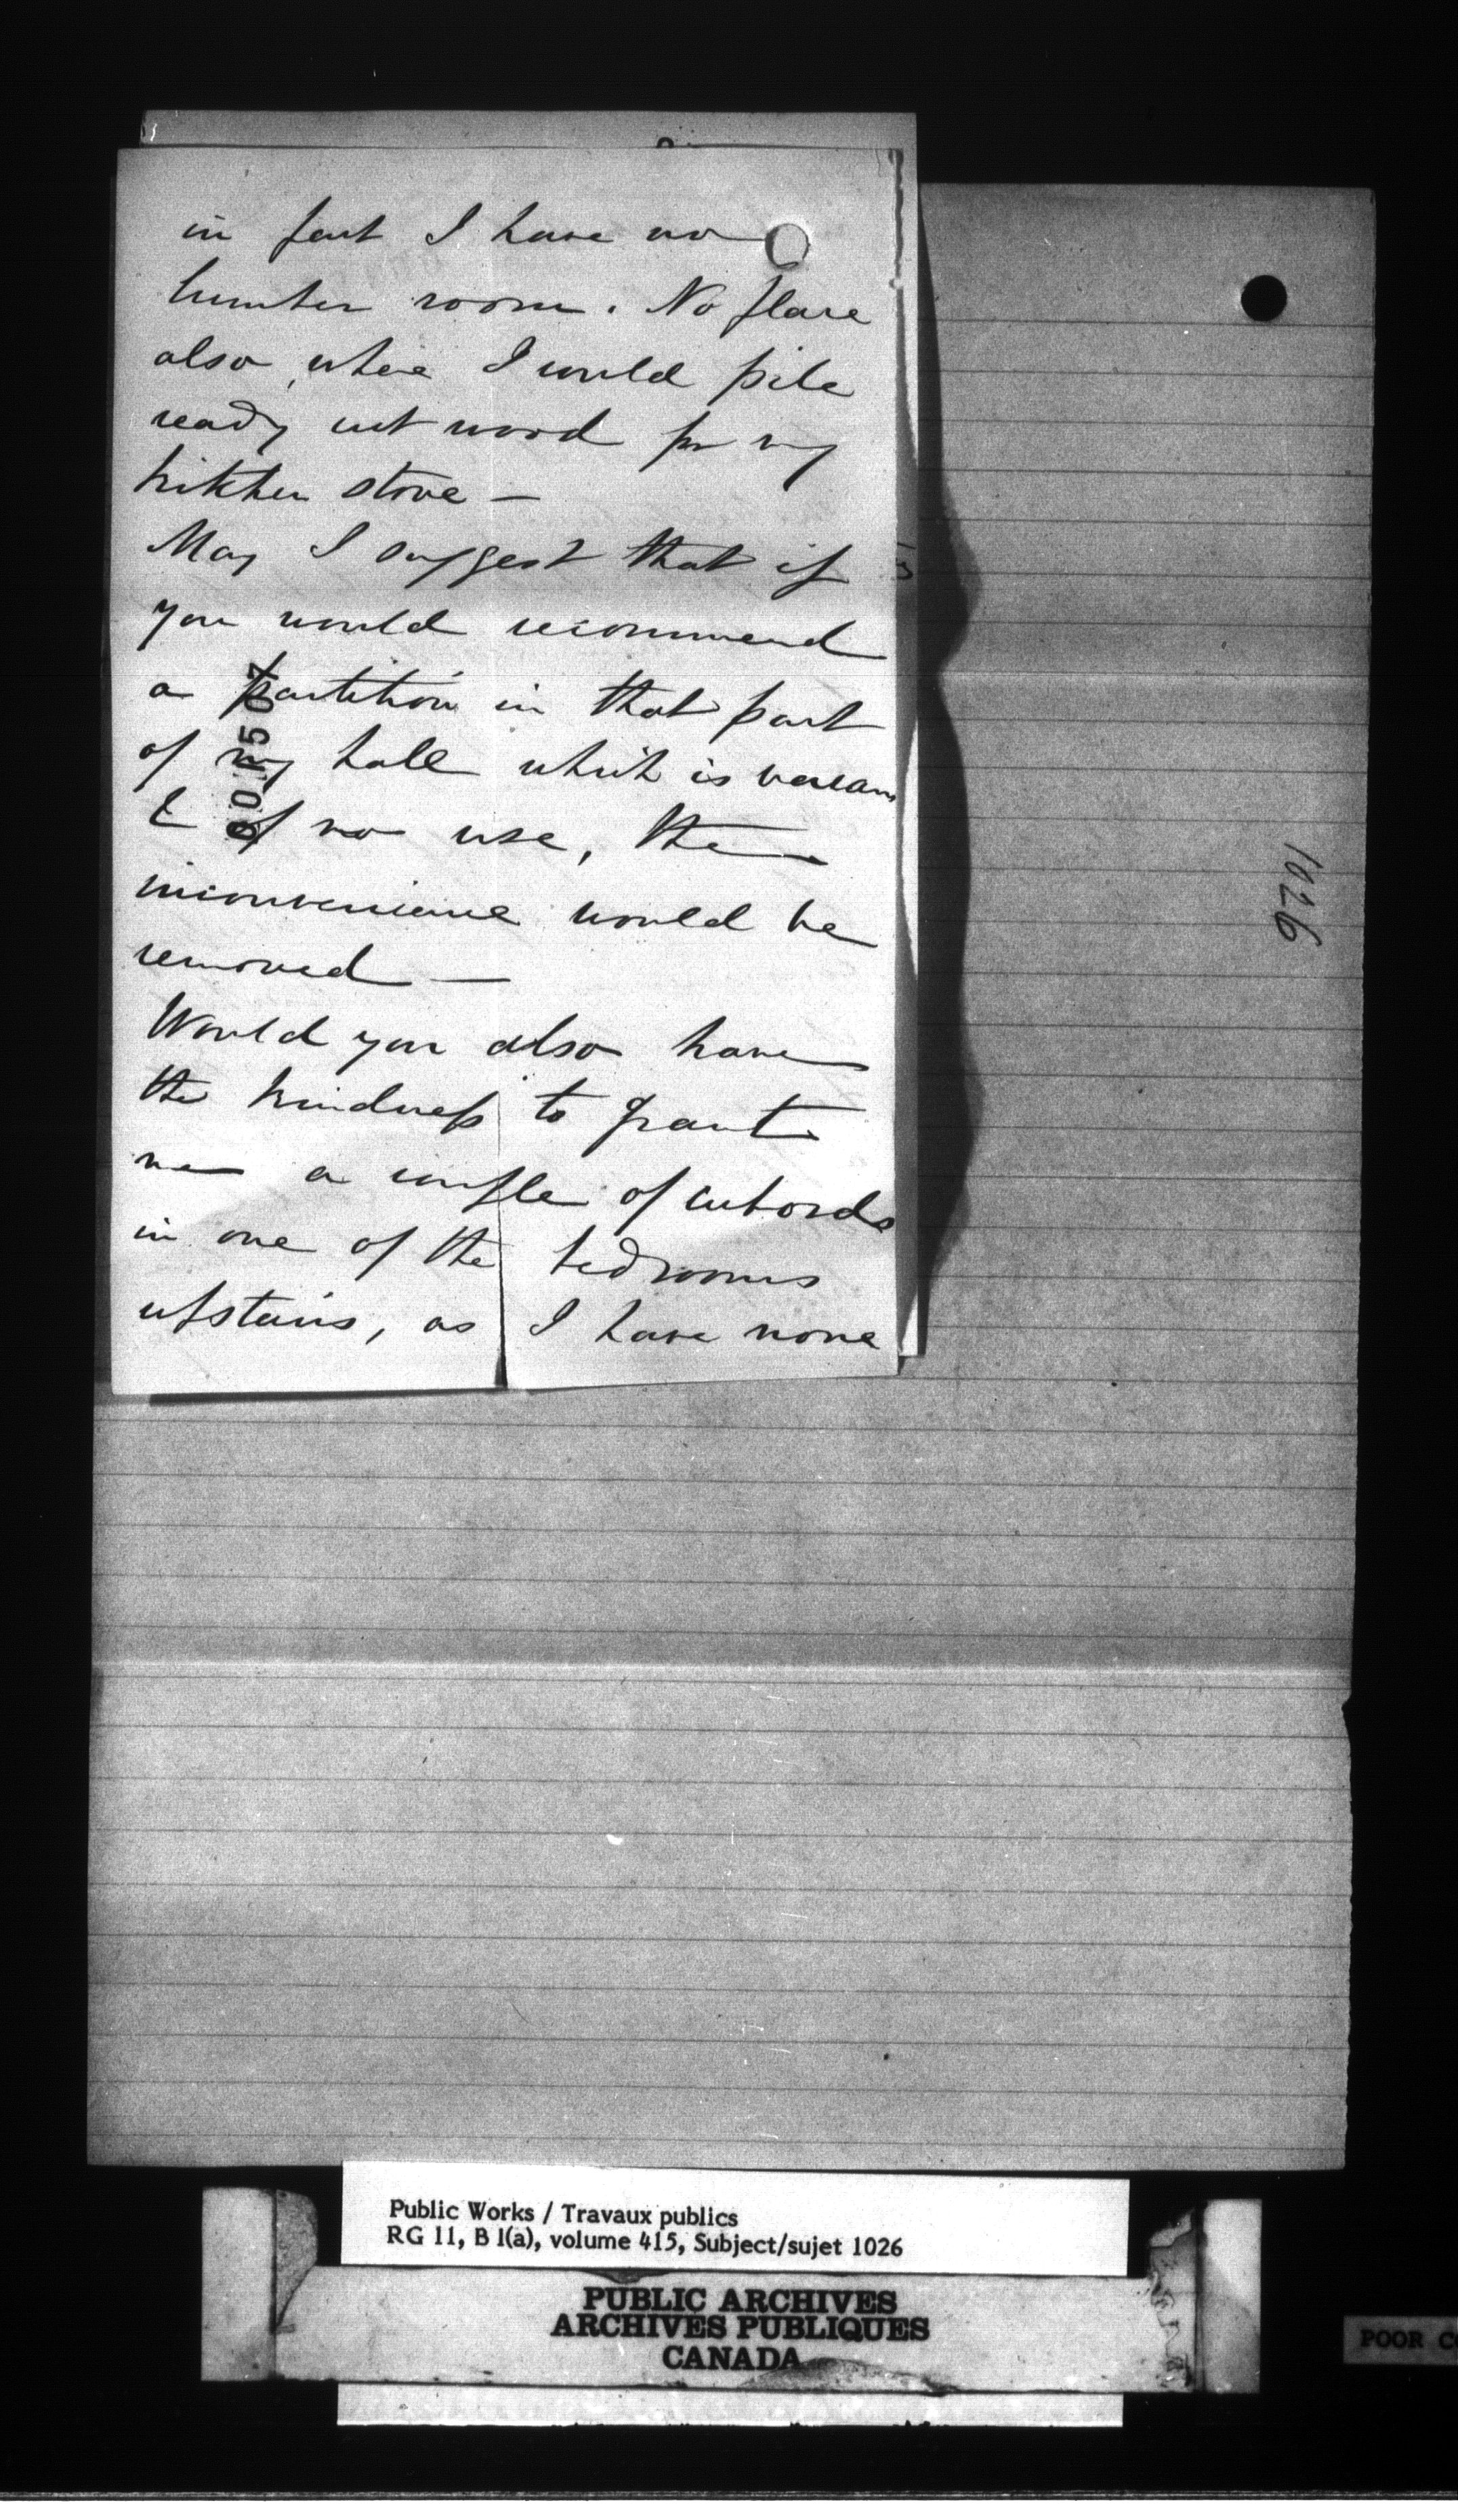 in fact I have no
lumber room. No place
also, where I could pile
ready cut wood for my
kitchen stove —
May I suggest that if
you would recommend
a partition in that part
of my hall which is vacant
& of no use, the
inconvenience would be
removed —
Would you also have
the kindness to grant
me a couple of cubords
in one of the bedrooms
upstairs, as I have none
1026
Public Works / Travaux publics
RG 11, B 1(a), volume 415, Subject/sujet 1026
PUBLIC ARCHIVES
ARCHIVES PUBLIQUES
CANADA
POOR CO